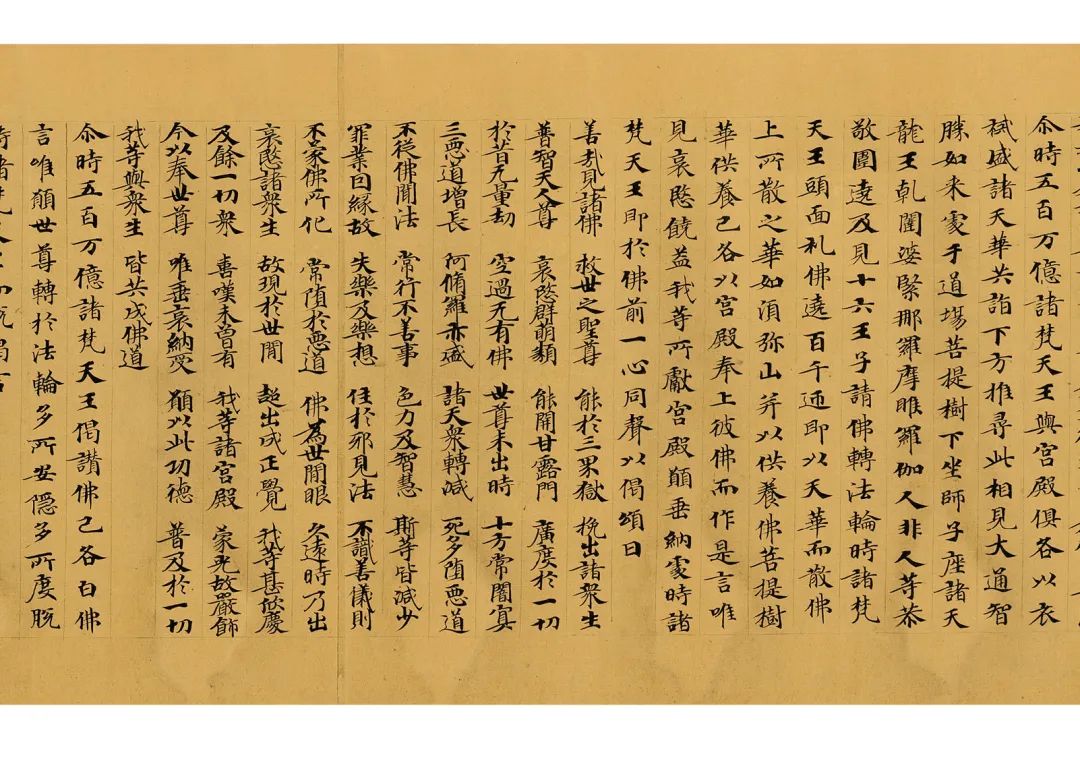 尒時五百万億諸梵天王與宮殿俱各以衣
裓盛諸天華共詣下方推尋此相見大通智
勝如来處于道場菩提樹下坐師子座諸天
龍王乹闥婆緊那羅摩睺羅伽人非人等恭
敬圍遶及見十六王子請佛轉法輪時諸梵
天王頭面礼佛遶百千迊即以天華而散佛
上所散之華如湏弥山并以供養佛菩提樹
華供養已各以宮殿奉上彼佛而作是言唯
見哀愍饒益我等所獻宮殿願垂納處時諸
梵天王即於佛前一心同聲以偈頌曰
善哉見諸佛 救世之聖尊 能於三界獄 挽出諸衆生
普智天人尊 哀愍群萌類 能開甘露門 廣度於一切
於昔无量劫 空過无有佛 世尊未出時 十方常闇冥
三惡道增長 阿脩羅亦盛 諸天衆轉減 死多堕惡道
不從佛聞法 常行不善事 色力及智慧 斯等皆減少
罪業因縁故 失樂及樂想 住於邪見法 不識善儀則
不蒙佛所化 常堕於惡道 佛為世間眼 久遠時乃出
哀愍諸衆生 故現於世間 超出成正覺 我等甚欣慶
及餘一切衆 喜嘆未曾有 我等諸宮殿 蒙光故嚴飾
今以奉世尊 唯垂哀納受 願以此功德 普及於一切
我等與衆生 皆共成佛道
尒時五百万億諸梵天王偈讃佛已各白佛
言唯願世尊轉於法輪多所安隱多所度脱